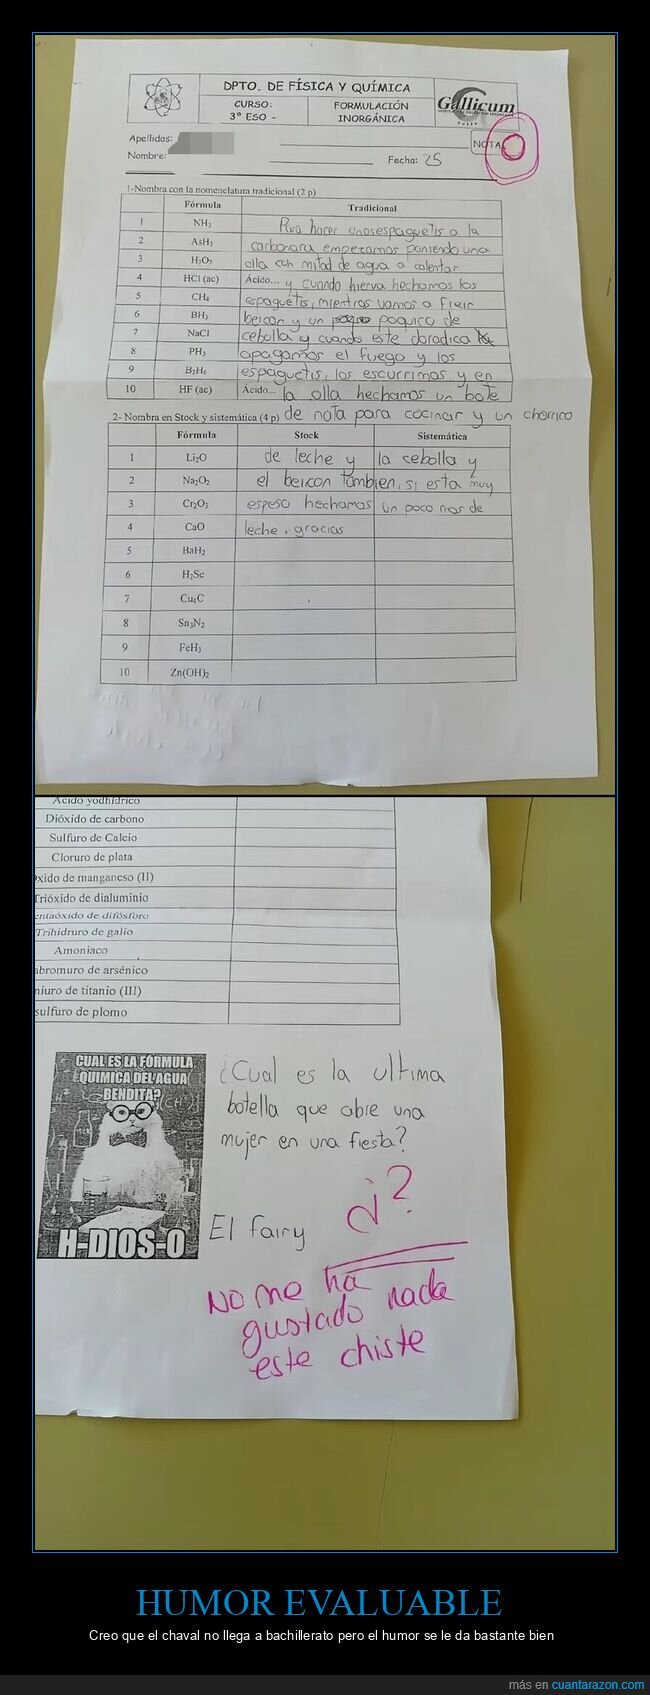 DPTO. DE FÍSICA Y QUÍMICA
CURSO:
3º ESO -
FORMULACIÓN
INORGÁNICA
Gallicum
Apellidos:
NOTA
Nombre:
Fecha: 25
1-Nombra con la nomenclatura tradicional (2 p)
Fórmula Tradicional
1 NH₃ Para hacer unos espaguetis a la
2 AsH₃ carbonara empezamos poniendo una
3 olla con mitad de agua a calentar
4 HCl (ac) Ácido... y cuando hierva hechamos los
5 CH₄ espaguetis, mientras vamos a freir
6 BH₃ beicon y un poquico de
7 NaCl cebolla y cuando este doradica
8 PH₃ apagamos el fuego y los
9 B₂H₆ espaguetis, los escurrimos y en
10 HF (ac) Ácido... la olla hechamos un bote
2- Nombra en Stock y sistemática (4 p) de nata para cocinar y un chorrico
Fórmula Stock Sistemática
1 Li₂O de leche y la cebolla y
2 Na₂O₂ el beicon tambien, si esta muy
3 Cr₂O₃ espeso hechamos un poco mas de
4 CaO leche, gracias
5 BaH₂
6 H₂Se
7 Cu₄C
8 Sn₃N₂
9 FeH₃
10 Zn(OH)₂
Ácido yodhídrico
Dióxido de carbono
Sulfuro de Calcio
Cloruro de plata
óxido de manganeso (II)
Trióxido de dialuminio
entaóxido de difósforo
Trihidruro de galio
Amoniaco
abromuro de arsénico
niuro de titanio (III)
sulfuro de plomo
CUAL ES LA FÓRMULA
QUIMICA DEL AGUA
BENDITA?
H-DIOS-O
¿Cual es la ultima
botella que abre una
mujer en una fiesta?
El fairy
¿?
No me ha
gustado nada
este chiste
HUMOR EVALUABLE
Creo que el chaval no llega a bachillerato pero el humor se le da bastante bien
más en cuantarazon.com